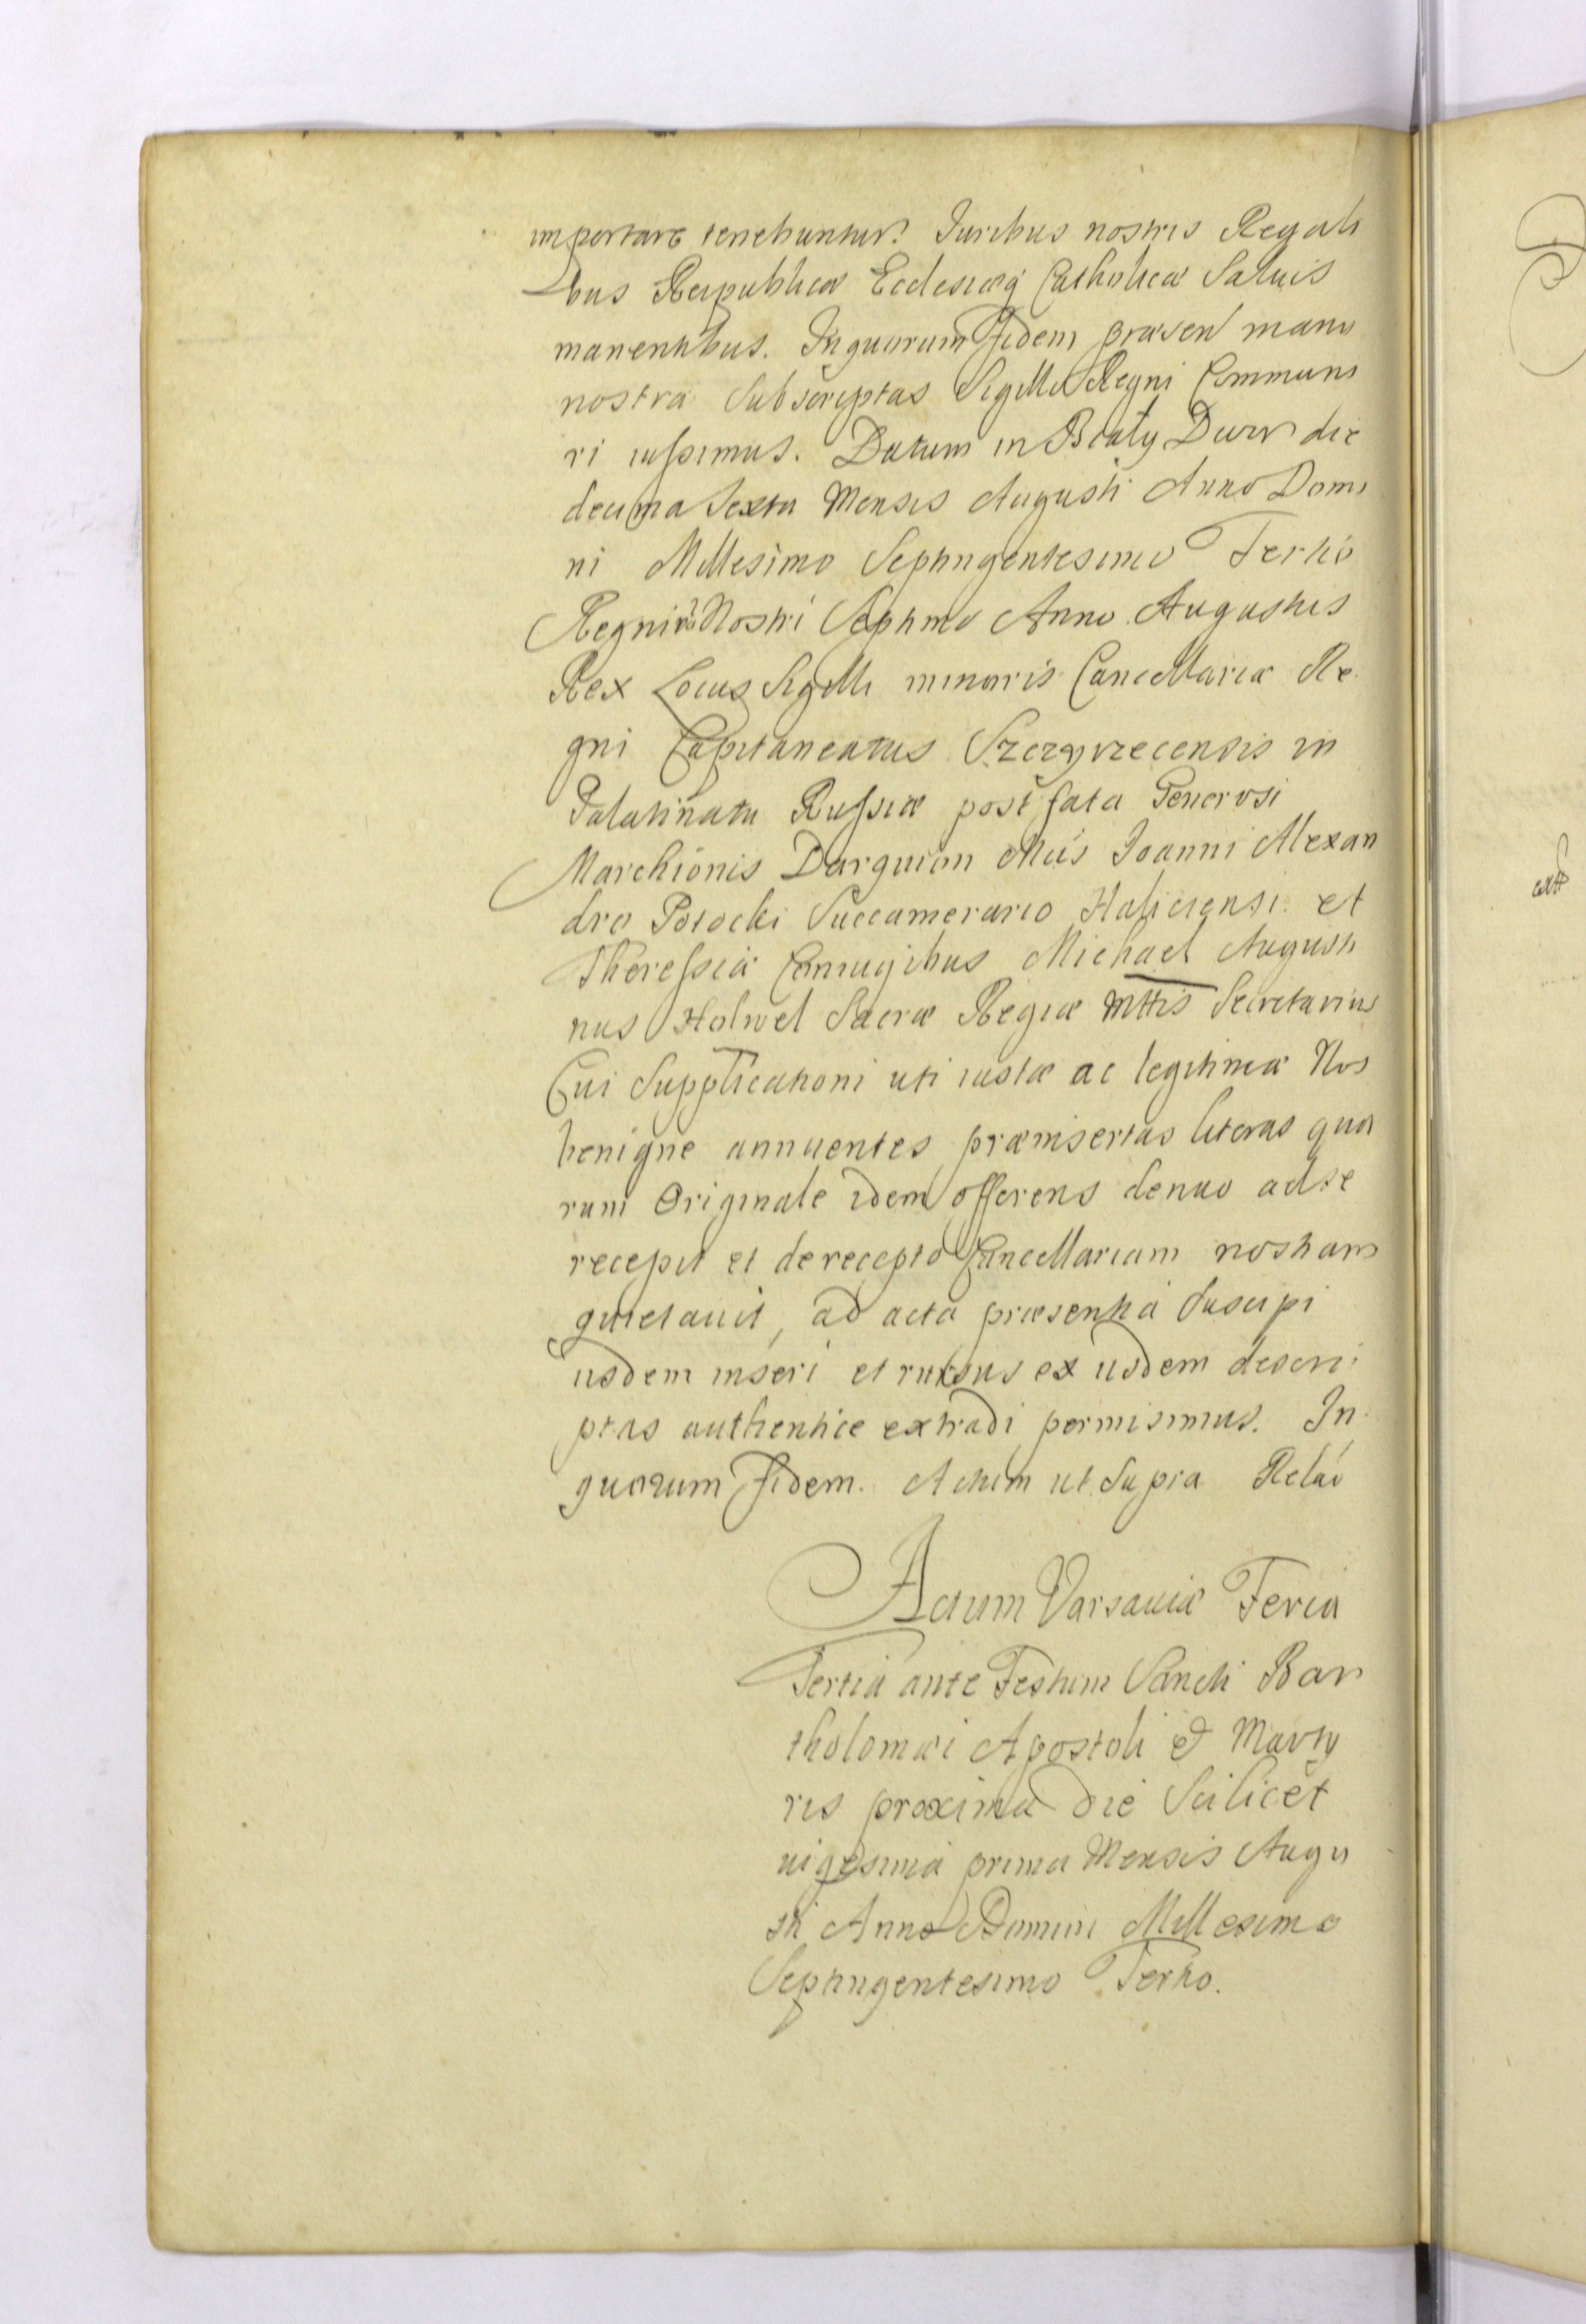 importare tenebuntur. Iuribus nostris Regali
bus Reipublicæ Ecclesiæq Catholicæ Saluis
manentibus. In quorum fidem præsen manu
nostra Subscriptas Sigillo Regni Communi
ri iussimus. Datum in Biały Dwor die
decima Sexta Mensis Augusti Anno Domi
ni Millesimo Septingentesimo Tertio
Regni vo Nostri Septimo Anno. Augustus
Rex Locus Sigilli minoris Cancellariæ Re
gni Capitaneatus Szczyrzecensis in
Palatinatu Russiæ post fata Generosi
Marchionis Darquian Mcis Joanni Alexan
dro Potocki Succamerario Haliciensi et
Theressiæ Coniugibus Michael Augusti
nus Holwel Sacræ Regiæ Mttis Secretarius
Cui Supplicationi uti iustæ ac legitimæ Nos
benigne annuentes præinsertas literas quo
rum Originale idem offerens denuo ad se
recepit et de recepto Cancellariam nostram
quietauit, ad acta præsentia Suscipi
iisdem inseri et rursus ex iisdem descri
ptas authentice extradi permisimus. In
quorum fidem. Actum ut Supra Relao
Actum Varsauiæ Feria
Tertia ante Festum Sancti Bar
tholomæi Apostoli & Marty
ris proxima die Scilicet
uigesima prima Mensis Augu
sti Anno Domini Millesimo
Septingentesimo Tertio.